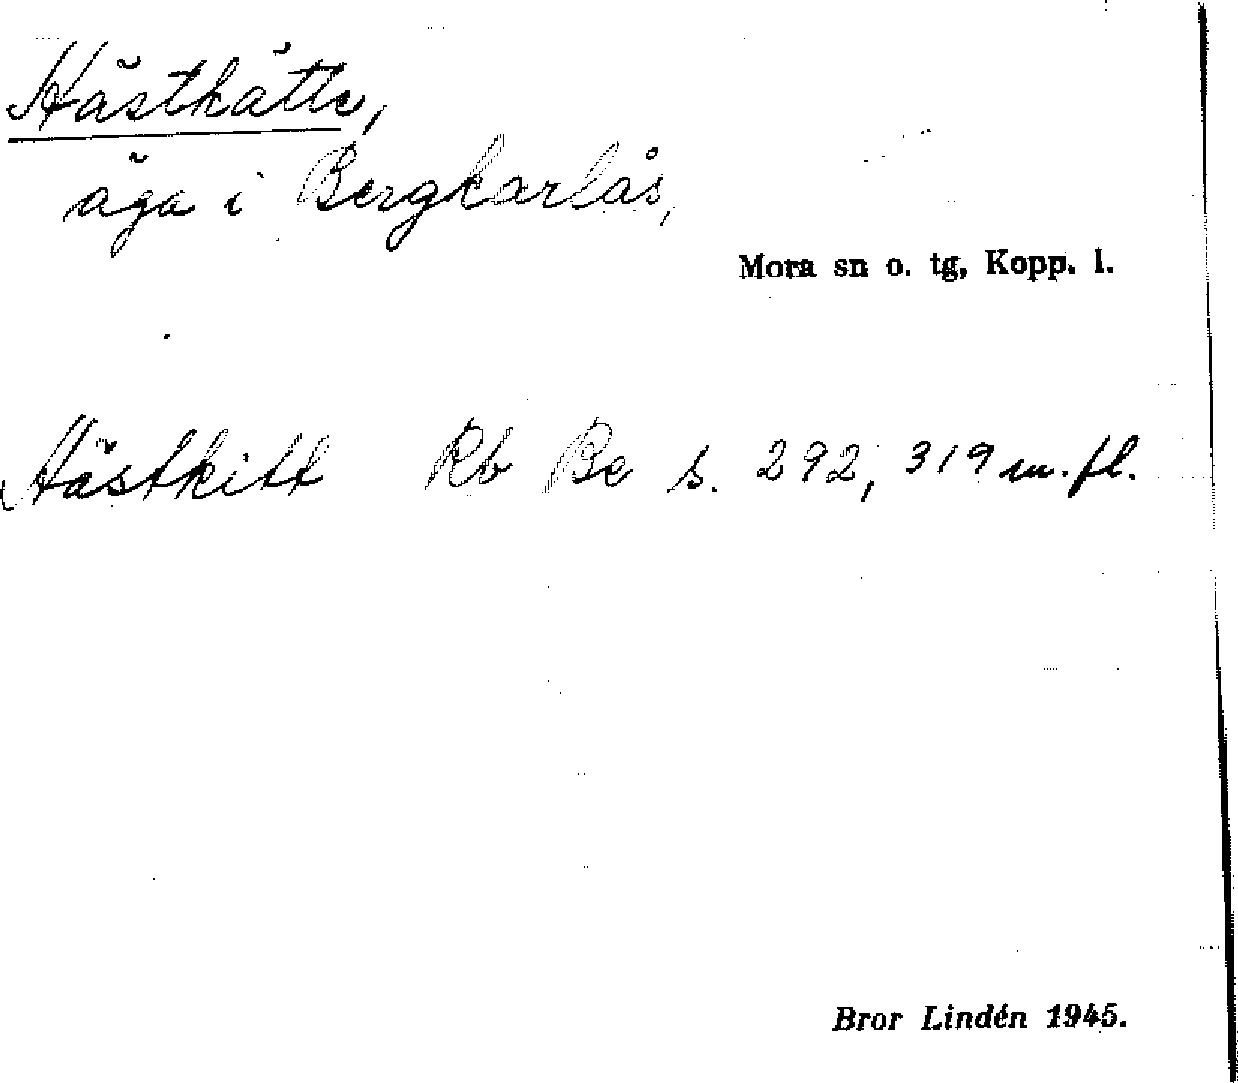 Hästkätte,
äga i Bergkarlås,
Mora sn o. tg, Kopp. l.
Hästkitt Rb Be s. 292, 319 m. fl.
Bror Lindén 1945.